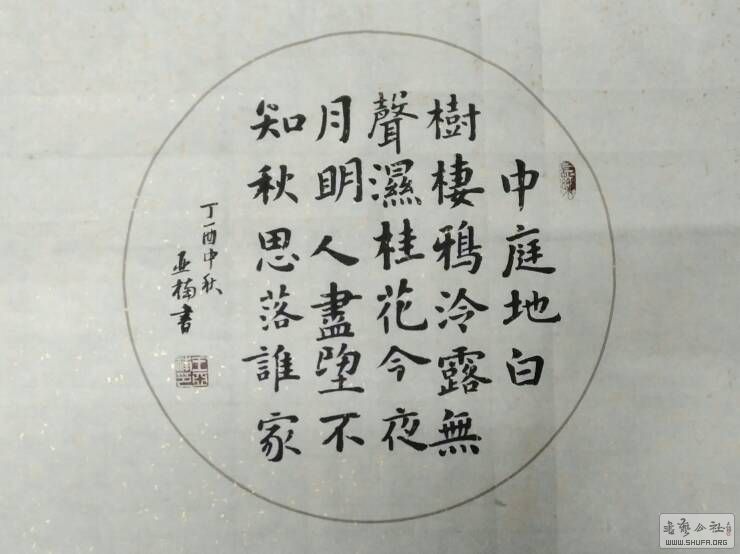 中庭地白
樹棲鴉泠露無
聲濕桂花今夜
月明人盡望不
知秋思落誰家
丁酉中秋
亞楠書
书艺公社
WWW.SHUFA.ORG